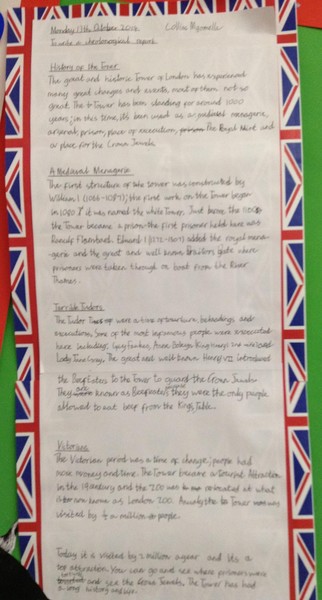 Monday 17th October 2016 Collins
To write a chronological report.
History of the Tower
The great and historic Tower of London has experienced
many great changes and events, most of them not so
great. The Tower has been standing for around 1000
years; in this time, it's been used as a palace, menagerie,
arsenal, prison, place of execution, The Royal Mint and
a place for the Crown Jewels.
A Medieval Menagerie
The first structure of the tower was constructed by
William I (1066-1087), the first work on the Tower began
in 1078 it was named the white Tower. Just before the 1100s
the Tower became a prison, the first prisoner held here was
Ranulf Flambard. Edward I (1272-1307) added the royal mena-
gerie and the great and well known Traitors gate where
prisoners were taken through on boat from the River
Thames.
Terrible Tudors
The Tudor were a time of torture, beheadings and
executions, some of the most infamous people were executed
here including, Guy Fawkes, Anne Boleyn, King Henry's and
Lady Jane Grey. The great and well known Henry VII introduced
the Beefeaters to the Tower to guard the Crown Jewels
they are known as Beefeaters they were the only people
allowed to eat beef from the Kings Table.
Victorians
The Victorian period was a time of change; people had
more money and time. The Tower became a Tourist Attraction
in the 19 century and the Zoo was relocated at what
is known as London Zoo. Annually the Tower was
visited by ½ a million people.
Today it is visited by 2 million a year and its a
top attraction. You can go and see where prisoners were
and see the Crown Jewels. The Tower has had
a history